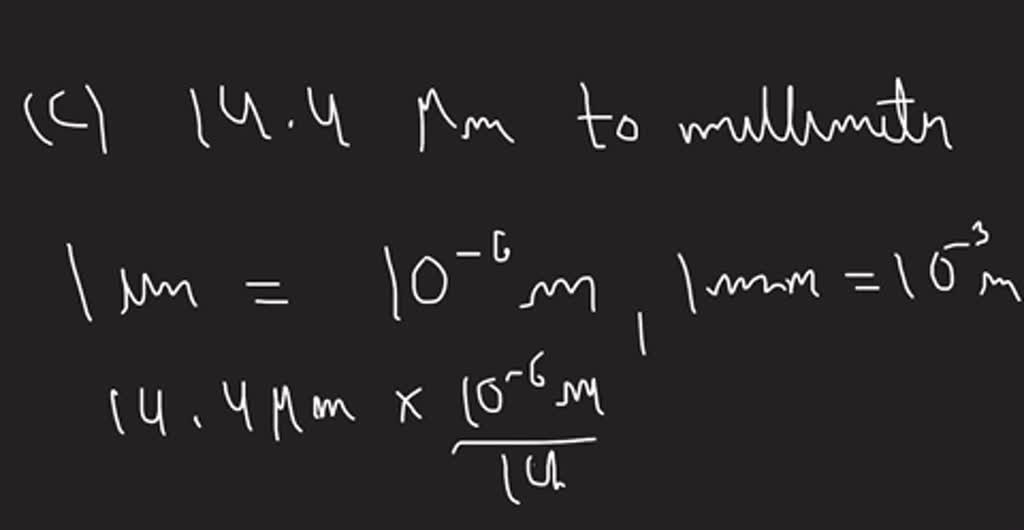 (c) 14.4 μm to millimeter
1 μm = 10⁻⁶ m, 1 mm = 10⁻³ m
14.4 μm × 10⁻⁶ m
1μ